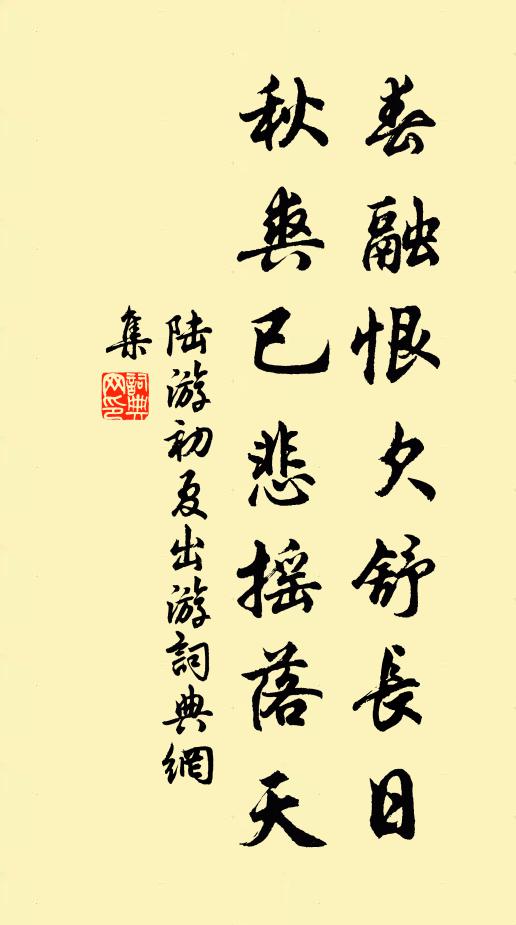 春融恨欠舒長日
秋爽已悲摇落天
陆游初夏出游詞典網
集
詞典网印